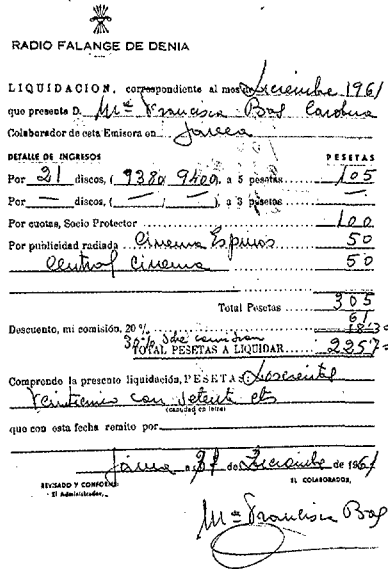 RADIO FALANGE DE DENIA
LIQUIDACION, correspondiente al mes Diciembre 1961
que presenta D. Mª Francisca Bas
Colaborador de esta Emisora en Jávea
DETALLE DE INGRESOS PESETAS
Por 21 discos, ( 9380 9400 ) a 5 pesetas 105
Por — discos, ( — / — ) a 3 pesetas —
Por cuotas, Socio Protector 100
Por publicidad radiada Cinema Espinós 50
Central Cinema 50
Total Pesetas 305
61
Descuento, mi comisión, 20 % 18'3
30% sobre comisión
TOTAL PESETAS A LIQUIDAR 2257
Comprende la presente liquidación, PESETAS: Doscientas
Veinticinco con setenta cts
(cantidad en letra)
que con esta fecha remito por
Jávea a 31 de Diciembre de 1961
REVISADO Y CONFORME EL COLABORADOR,
El Administrador,
Mª Francisca Bas